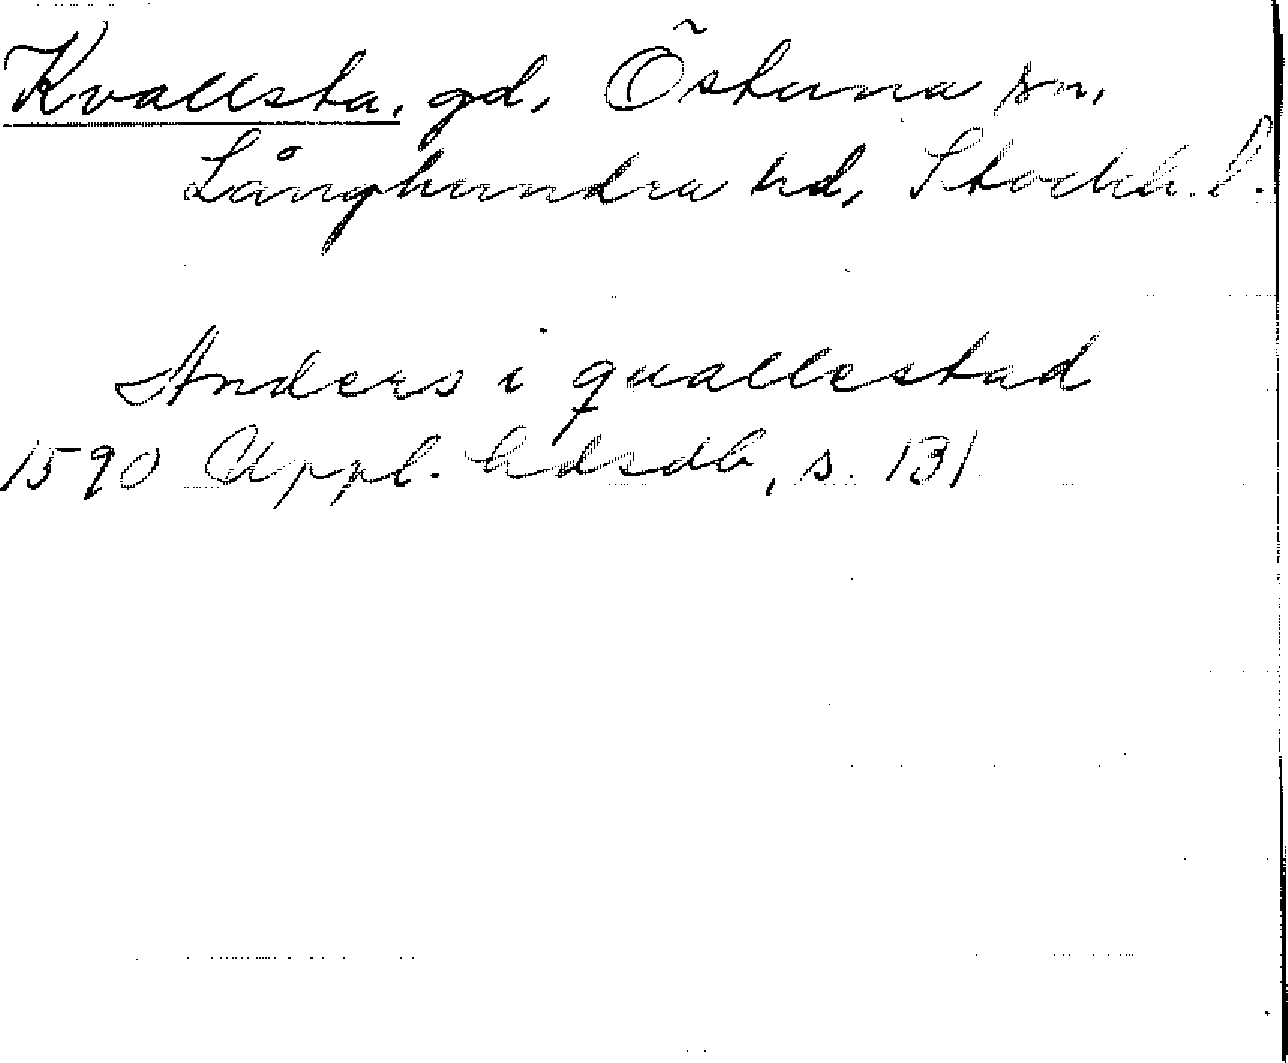 Kvallsta, gd, Östuna sn,
Långhundra hd, Stockh. l.
Anders i quallestad
1590 Uppl. hdsdb, s. 131